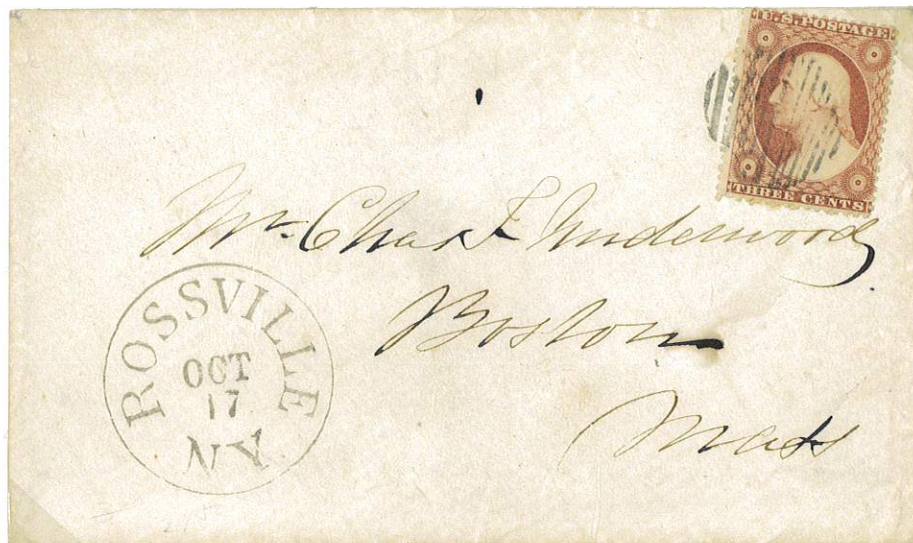 U.S. POSTAGE
THREE CENTS
Mr. Chas F Underwood
Boston
Mass
ROSSVILLE
OCT
17
NY